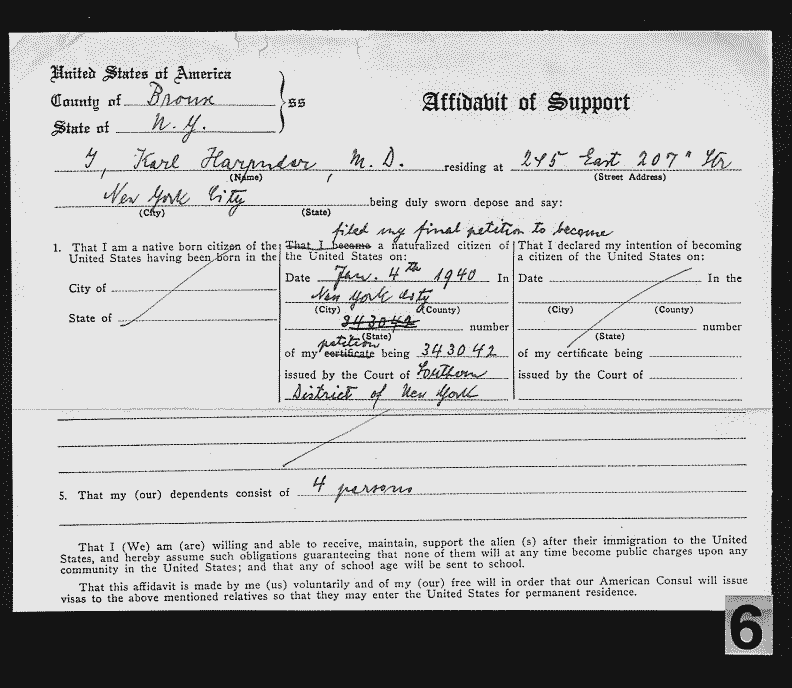 United States of America
County of Bronx
State of N.Y.
} ss
Affidavit of Support
I, Karl Harpuder, M.D. residing at 245 East 207" Str
(Name) (Street Address)
New York City being duly sworn depose and say:
(City) (State)
filed my final petition to become
1. That I am a native born citizen of the
United States having been born in the
City of
State of
That I became a naturalized citizen of
the United States on:
Date Jan. 4th 1940 In
New York City
(City) (County)
343042 number
(State)
petition
of my certificate being 343042
issued by the Court of Southern
District of New York
That I declared my intention of becoming
a citizen of the United States on:
Date In the
(City) (County)
number
(State)
of my certificate being
issued by the Court of
5. That my (our) dependents consist of 4 persons
That I (We) am (are) willing and able to receive, maintain, support the alien (s) after their immigration to the United
States, and hereby assume such obligations guaranteeing that none of them will at any time become public charges upon any
community in the United States; and that any of school age will be sent to school.
That this affidavit is made by me (us) voluntarily and of my (our) free will in order that our American Consul will issue
visas to the above mentioned relatives so that they may enter the United States for permanent residence.
6